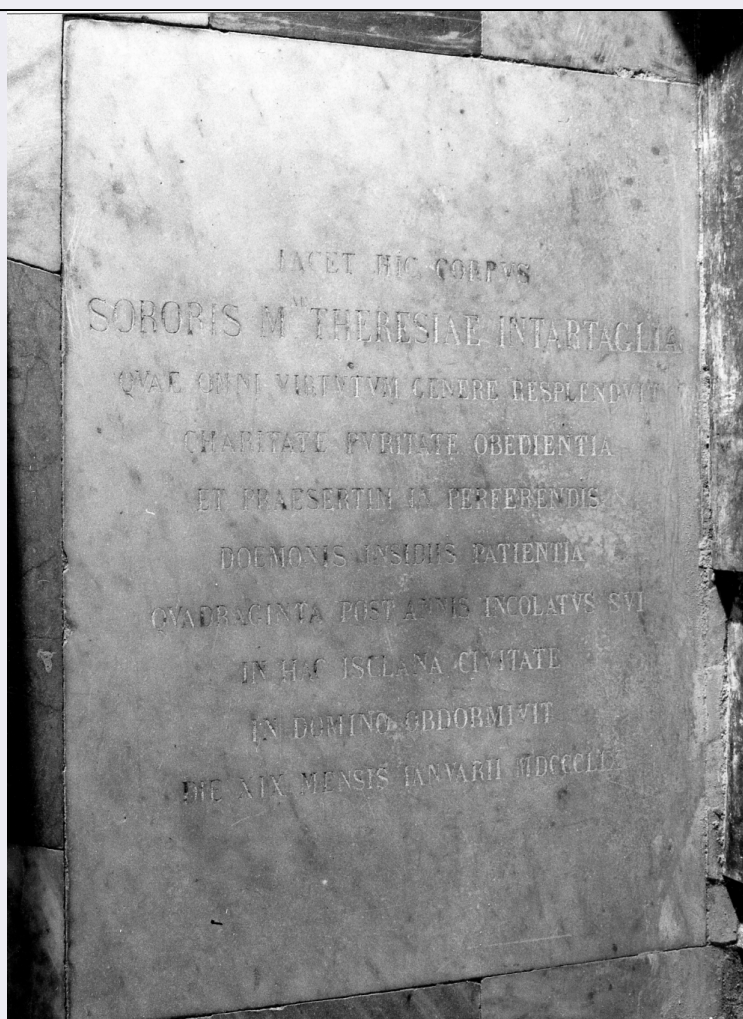 IACET HIC CORPVS
SORORIS M.AE THERESIAE INTARTAGLIA
QVAE OMNI VIRTVTVM GENERE RESPLENDVIT
CHARITATE PVRITATE OBEDIENTIA
ET PRAESERTIM IN PERFERENDIS
DOEMONIS INSIDIIS PATIENTIA
QVADRAGINTA POST ANNIS INCOLATVS SVI
IN HAC ISCLANA CIVITATE
IN DOMINO OBDORMIVIT
DIE XIX MENSIS IANVARII